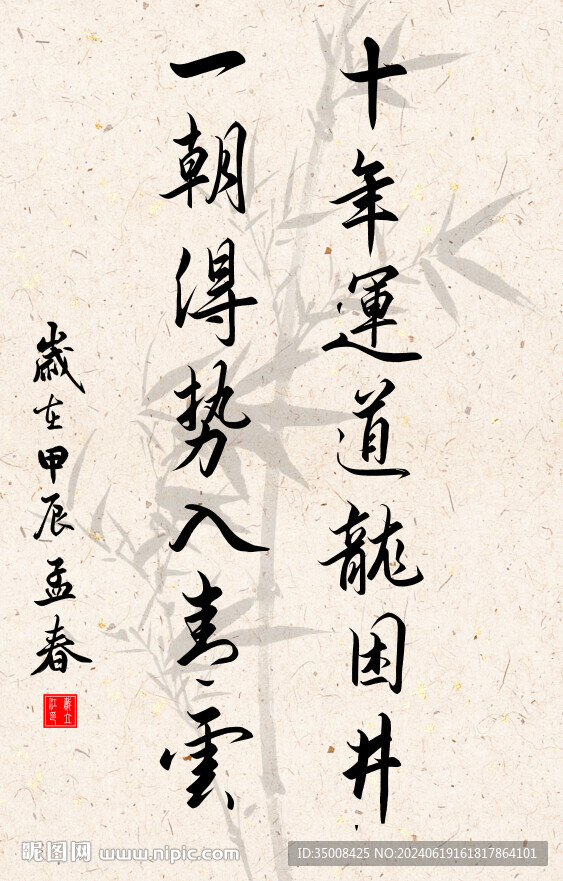 十年運道龍困井
一朝得势入青雲
歲在甲辰孟春
昵图网 www.nipic.com
ID:35008425 NO:20240619161817864101